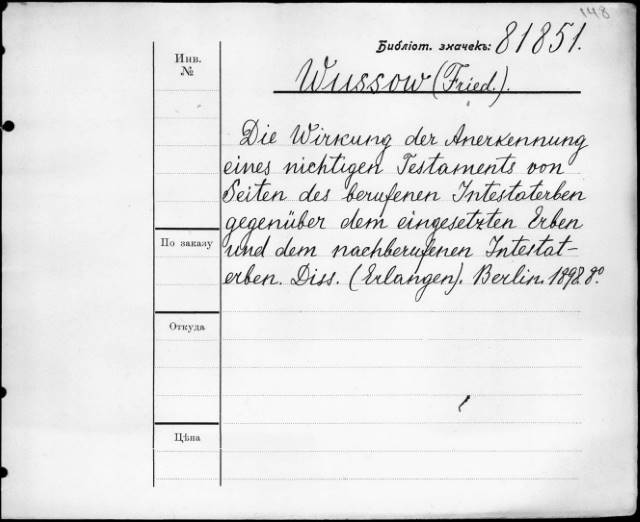 148
Библіот. значекъ: 81851.
Инв.
№
Wussow (Fried.).
Die Wirkung der Anerkennung
eines nichtigen Testaments von
Seiten des berufenen Intestaterben
gegenüber dem eingesetzten Erben
По заказу
und dem nachberufenen Intestat-
erben. Diss. (Erlangen). Berlin. 1898. 8º.
Откуда
Цѣна